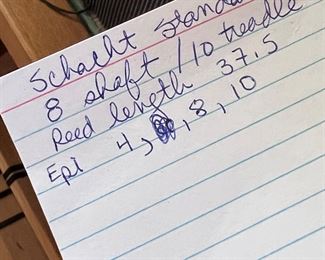 Schacht
8 shaft / 10 treadle
Reed length 37.5
Epi 4, , 8, 10